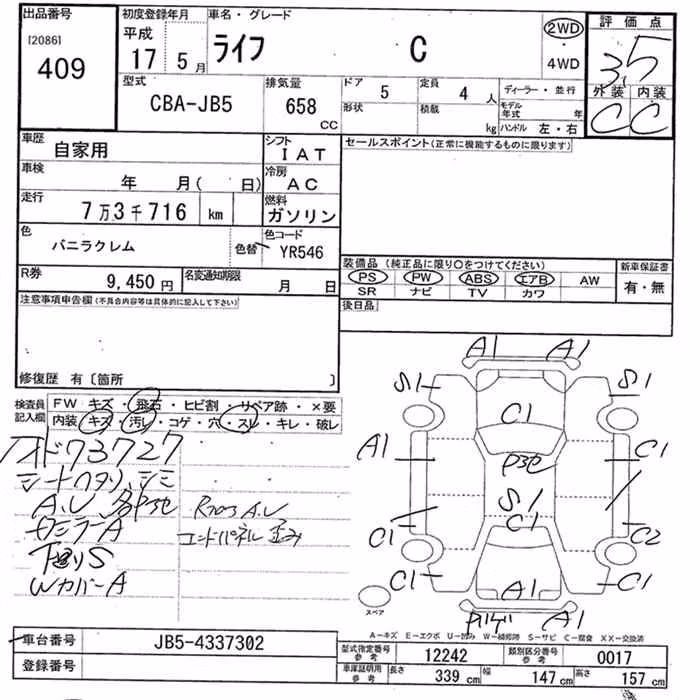 出品番号
[2086]
409
初度登録年月
平成
17 5月
車名・グレード
ライフ C
2WD
・
4WD
評価点
3.5
外装 内装
C C
型式
CBA-JB5
排気量
658 CC
ドア 5
定員 4 人
形状
積載 kg
ディーラー・並行
モデル年式 年
ハンドル 左・右
車歴
自家用
シフト
IAT
車検
年 月( 日)
冷房
AC
走行
7万3千716 km
燃料
ガソリン
色
バニラクレム
色替
色コード
YR546
R券
9,450円
名変通知期限
月 日
セールスポイント(正常に機能するものに限ります)
装備品 (純正品に限り〇をつけてください)
PS PW ABS エアB AW
SR ナビ TV カワ
新車保証書
有・無
後日品
注意事項申告欄(不具合内容等は具体的に記入して下さい)
修復歴 有〔箇所 〕
検査員記入欄
FW キズ・飛石・ヒビ割・リペア跡・×要
内装 キズ・汚レ・コゲ・穴・スレ・キレ・破レ
73727
A.U
A
S
WカバーA
A1 A1
S1 S1
C1
A1 C1
S1
C1
C1 C2
C1 C1
A1
A1
スペア
A-キズ E-エクボ U-凹み W-補修跡 S-サビ C-腐食 XX-交換済
車台番号
JB5-4337302
登録番号
型式指定番号 参考
12242
類別区分番号 参考
0017
車庫証明用 参考
長さ 339 cm
幅 147 cm
高さ 157 cm